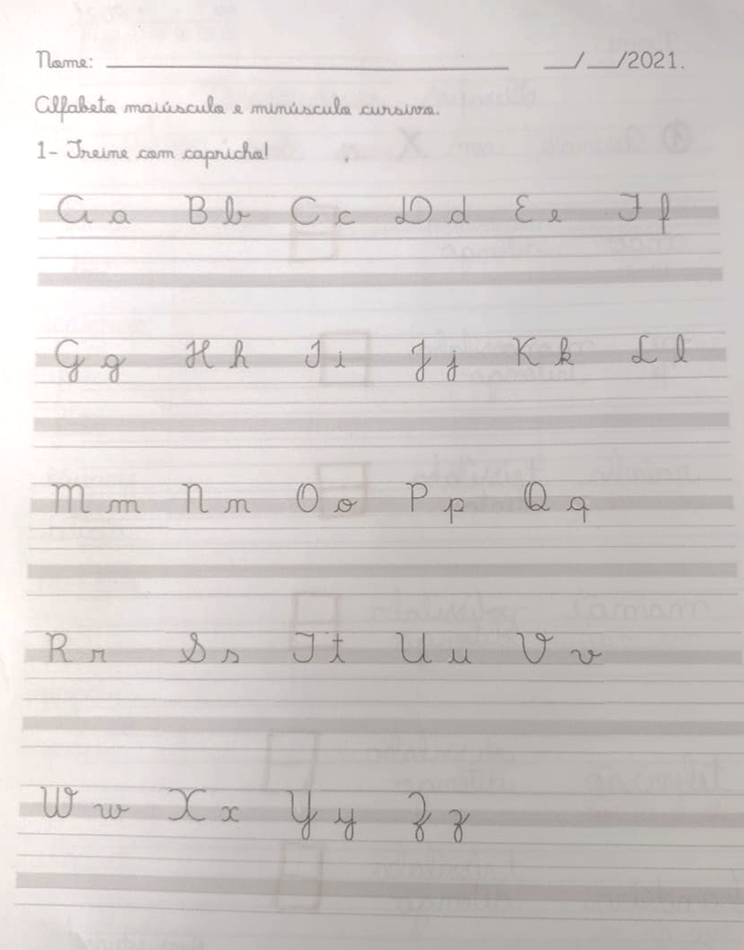 Nome: ____________________ __/__/2021.
Alfabeto maiúsculo e minúsculo cursivo.
1- Treine com capricho!
A a B b C c D d E e F f
G g H h I i J j K k L l
M m N n O o P p Q q
R r S s T t U u V v
W w X x Y y Z z